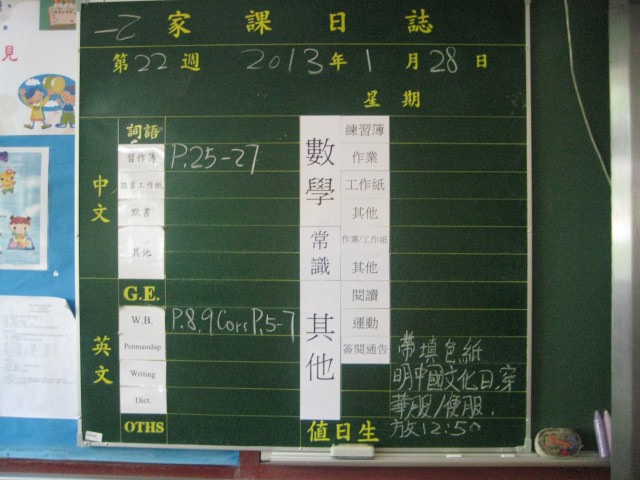 一乙 家課日誌
第22週 2013年1月28日
星期
中文
詞語
習作簿 P.25-27
默書
其他
英文
G.E.
W.B. P.8,9 Corr P.5-7
Penmanship
Writing
Dict
OTHS
數學
練習簿
作業
工作紙
其他
常識
作業/工作紙
其他
其他
閱讀
運動
簽閱通告
帶填色紙
明中國文化日,穿
華服/便服.
放12:50.
值日生
見